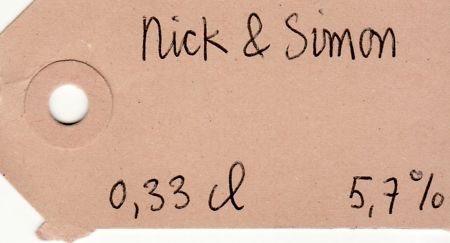 Nick & Simon
0,33 cl 5,7%